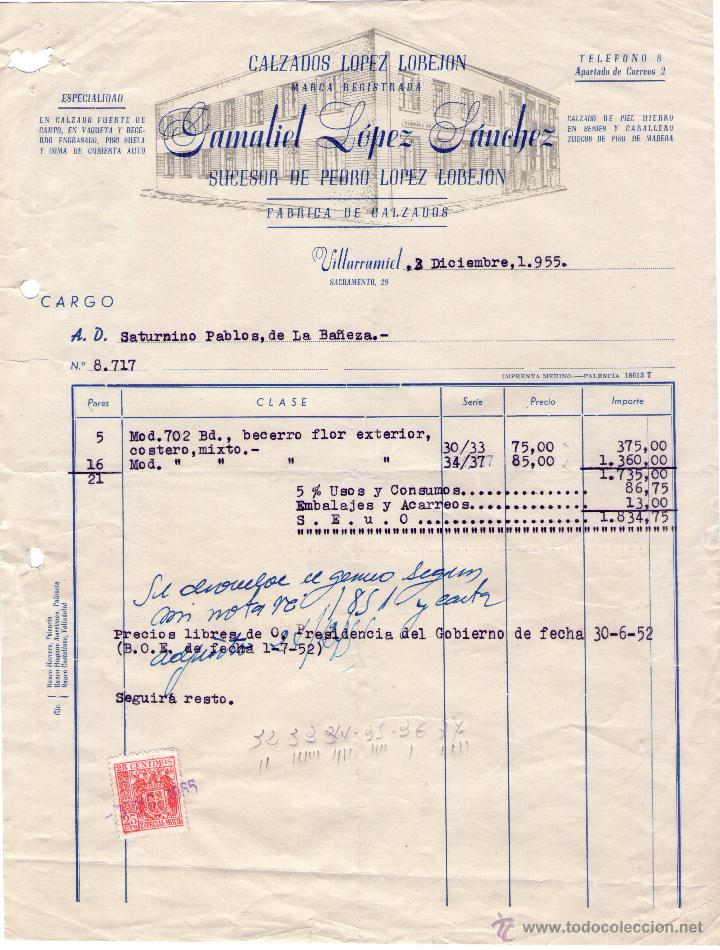 CALZADOS LOPEZ LOBEJON
MARCA REGISTRADA
Gamaliel López Sánchez
SUCESOR DE PEDRO LOPEZ LOBEJON
FABRICA DE CALZADOS
TELEFONO 8
Apartado de Correos 2
ESPECIALIDAD
EN CALZADO FUERTE DE
CAMPO, EN VAQUETA Y BECE-
RRO ENGRASADO, PISO SUELA
Y GOMA DE CUBIERTA AUTO
CALZADO DE PIEL HIERRO
EN SERIES Y CABALLERO
ZUECOS DE PISO DE MADERA
Villarramiel, 3 Diciembre, 1.955.
SACRAMENTO, 29
CARGO
A. D. Saturnino Pablos, de La Bañeza.-
N.º 8.717
IMPRENTA MERINO.—PALENCIA 18613 T
Pares CLASE Serie Precio Importe
5 Mod. 702 Bd., becerro flor exterior,
costero, mixto.- 30/33 75,00 375,00
16 Mod. " " " " 34/37 85,00 1.360,00
21 1.735,00
5 % Usos y Consumos............... 86,75
Embalajes y Acarreos.............. 13,00
S . E . u . O ..................... 1.834,75
Se devuelve el genero segun
mi nota nº 1851 y carta
adjunta
Precios libres de O. Presidencia del Gobierno de fecha 30-6-52
(B.O.E. de fecha 1-7-52)
Seguirá resto.
32 33 34 35 36 37
Banco Herrero, Palencia
Banco Hispano Americano, Palencia
Banco Castellano, Valladolid
25 CENTIMOS
25
ESPECIAL MOVIL
www.todocoleccion.net